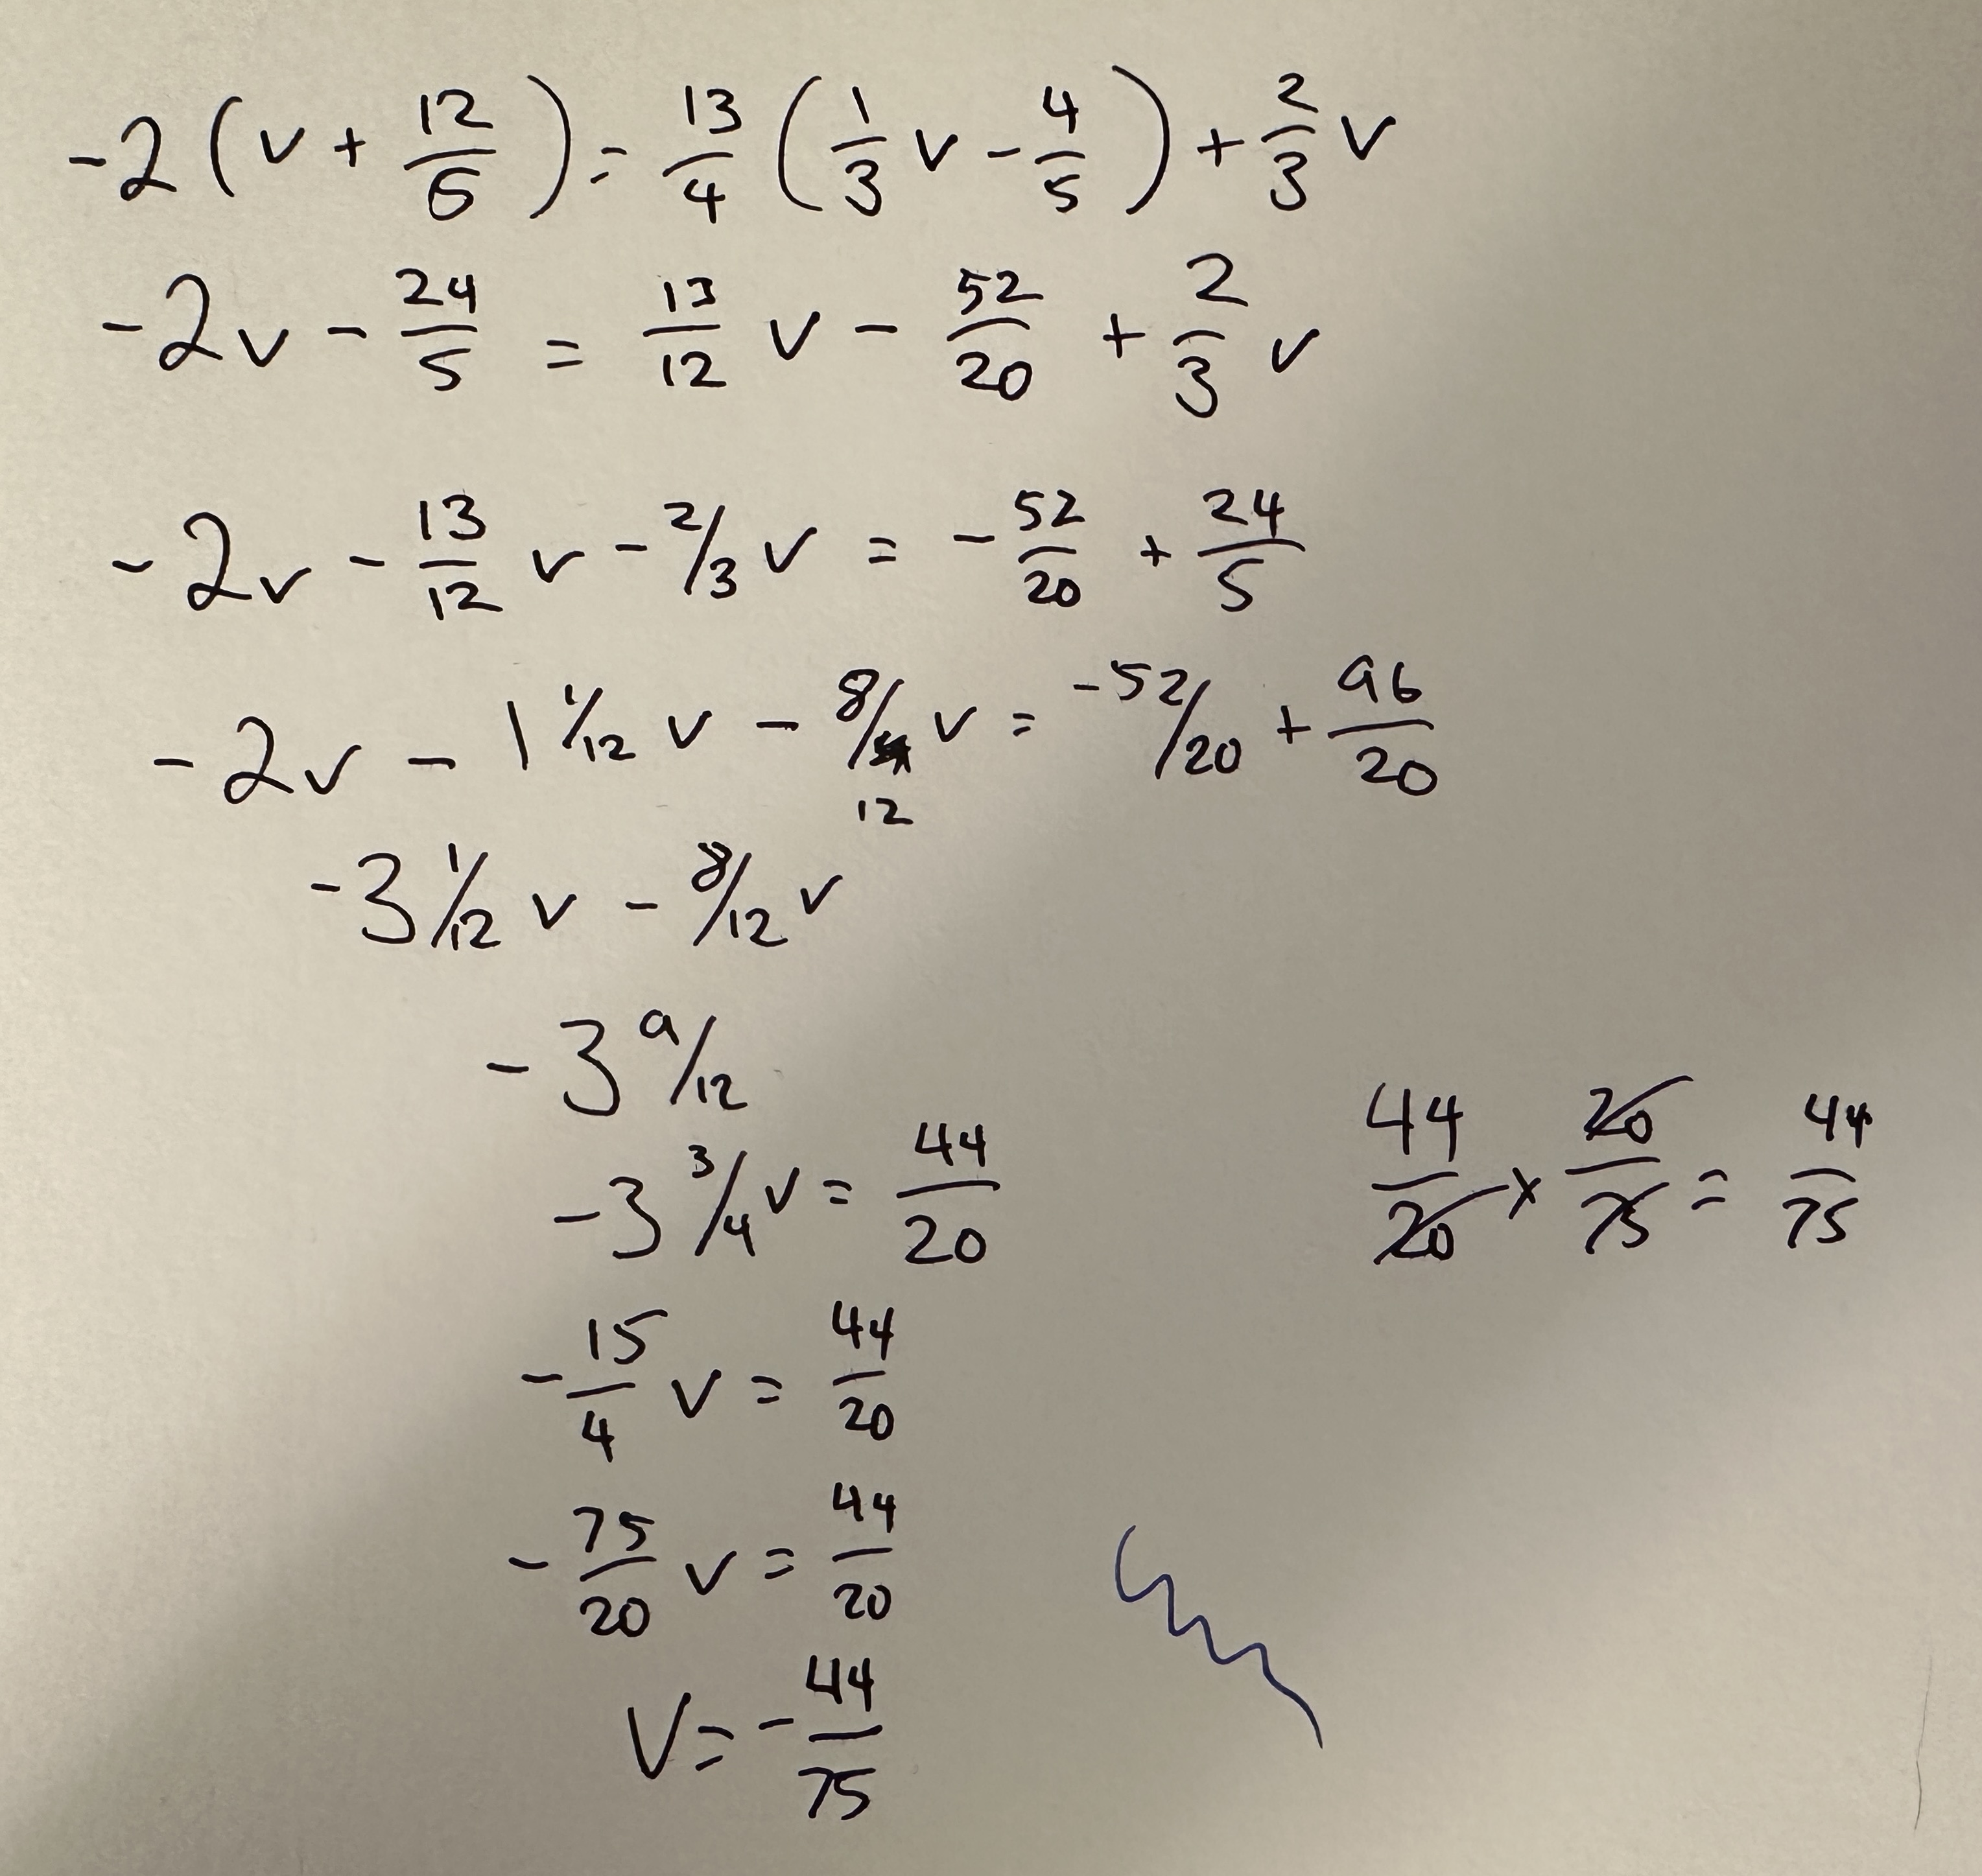 -2(v + 12/5) = 13/4 (1/3 v - 4/5) + 2/3 v
-2v - 24/5 = 13/12 v - 52/20 + 2/3 v
-2v - 13/12 v - 2/3 v = - 52/20 + 24/5
-2v - 1 1/12 v - 8/12 v = -52/20 + 96/20
-3 1/12 v - 8/12 v
-3 9/12
-3 3/4 v = 44/20
44/20 x 20/75 = 44/75
- 15/4 v = 44/20
- 75/20 v = 44/20
V = - 44/75